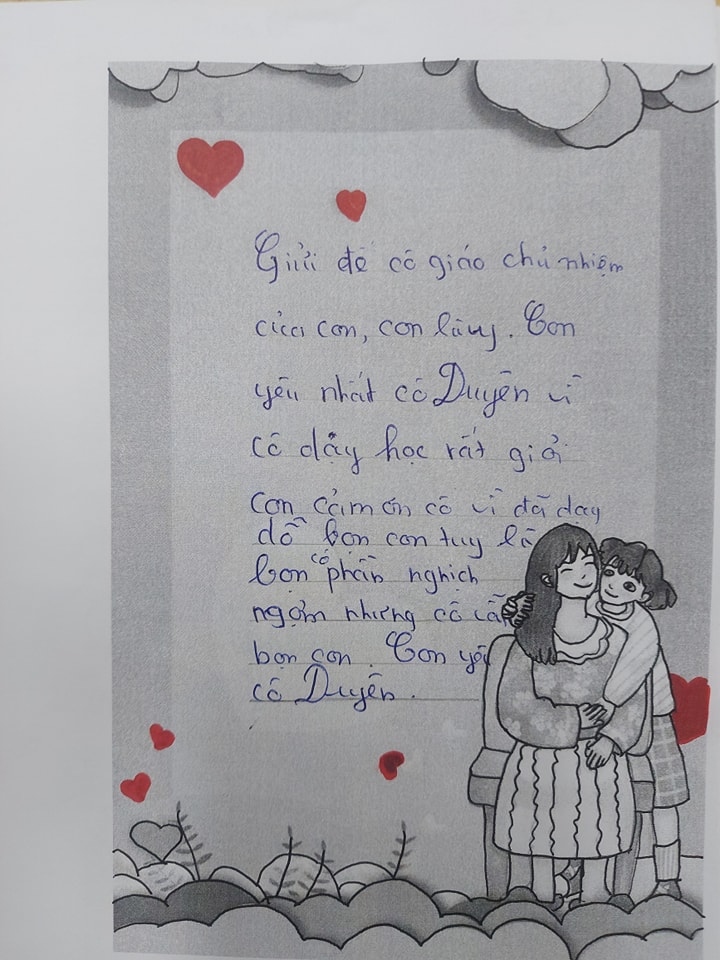 Giửi đế cô giáo chủ nhiệm
của con, con lũng. Con
yêu nhất cô Duyên vì
cô dạy học rất giỏi
con cảm ơn cô vì đã dạy
dỗ bọn con tuy là
bọn có phần nghịch
ngợm nhưng cô vẫn
bọn con. Con yêu
cô Duyên.